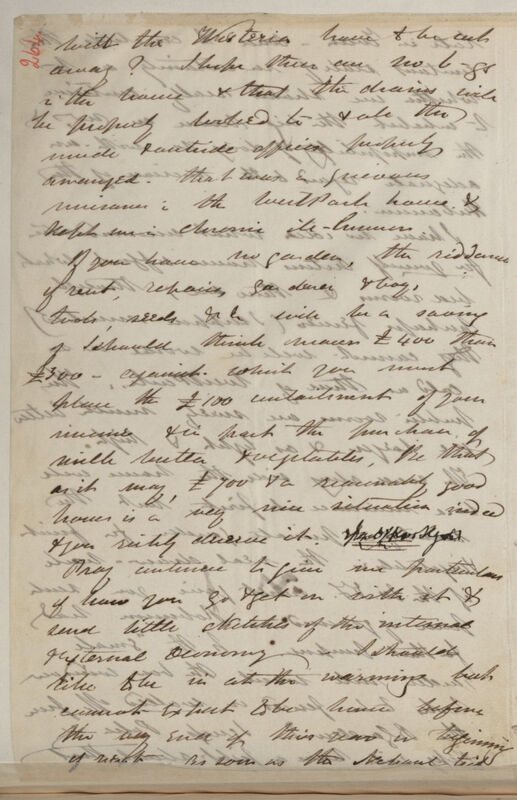 264
with the Wisteria have to be cut
away? I hope there are no bogs
in the house & that the drains will
be properly looked to & all the
inside & outside offices properly
arranged. that was a grievous
nuisance in the West Park house &
kept me in chronic ill-humor
If you have no garden, the riddance
of rent, repairs gardener & boy,
tools, seeds &c &c will be a saving
of I should think nearer £400 than
£300 – against which you must
place the £100 curtailment of your
income & in part the purchase of
milk butter & vegetables, Be that
as it may, £700 & a reasonably good
house is a very nice situation indeed
& you richly deserve it.
Pray continue to give me particulars
of how you go & get on with it &
send little sketches of the internal
& external Oeconomy I should
like to be in at the warming but
cannot expect to be home before
the very end of this year or beginning
of next as soon as the